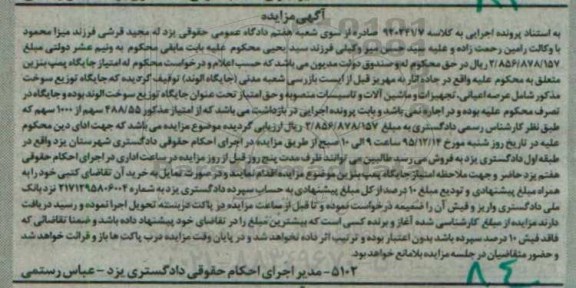 آگهی مزایده
به استناد پرونده اجرایی به کلاسه ۹۴۰۴۴۱/۷ صادره از سوی شعبه هفتم دادگاه عمومی حقوقی یزد له مجید قرشی فرزند میرزا محمود
با وکالت رامین رحمت زاده و علیه سید حسن میر وکیلی فرزند سید یحیی محکوم علیه بابت مابقی محکوم به ونیم عشر دولتی مبلغ
۲/۸۵۶/۸۷۸/۱۵۷ ریال در حق محکوم له وصندوق دولت مدیون می باشد که حسب اعلام و درخواست محکوم له امتیاز جایگاه پمپ بنزین
متعلق به محکوم علیه واقع در جاده انار به مهریز قبل از ایست بازرسی شعبه مدنی (جایگاه الوند) توقیف گردیده که جایگاه توزیع سوخت
مذکور شامل عرصه اعیانی، تجهیزات و ماشین آلات و تاسیسات منصوبه و حق امتیاز تحت عنوان جایگاه توزیع سوخت الوند بوده و جایگاه در
تصرف محکوم علیه بوده و در اجاره نمی باشد و بابت پرونده اجرایی در بازداشت می باشد که از امتیاز مذکور ۴۸۸/۵۵ سهم از ۱۰۰۰ سهم که
طبق نظر کارشناس رسمی دادگستری به مبلغ ۲/۸۵۶/۸۷۸/۱۵۷ ریال ارزیابی گردیده موضوع مزایده می باشد که جهت ادای دین محکوم
علیه در تاریخ روز شنبه مورخ ۹۵/۱۲/۱۴ ساعت ۹ الی ۱۰ صبح از طریق مزایده در اجرای احکام حقوقی دادگستری شهرستان یزد واقع در
طبقه اول دادگستری یزد به فروش می رسد طالبین می توانند ظرف مدت پنج روز قبل از روز مزایده در ساعت اداری در اجرای احکام حقوقی
هفتم یزد حاضر و جهت ملاحظه امتیاز جایگاه پمپ بنزین موضوع مزایده اقدام نمایند و در صورت تمایل به خرید آن تقاضای کتبی خود را به
همراه مبلغ پیشنهادی و تودیع مبلغ ۱۰ درصد از کل مبلغ پیشنهادی به حساب سپرده دادگستری یزد به شماره ۲۱۷۱۲۹۵۸۰۶۰۰۴ نزد بانک
ملی دادگستری واریز و فیش آن را ضمیمه درخواست نموده و تا قبل از ساعت مزایده در پاکت دربسته تحویل اجرا نموده و رسید دریافت
دارند مزایده از مبلغ کارشناسی شده آغاز و برنده کسی است که بیشترین مبلغ را در تقاضای خود پیشنهاد داده باشد و ضمنا تقاضائی که
فاقد فیش ۱۰ درصد سپرده باشد بدون اعتبار بوده و ترتیب اثر داده نخواهد شد و در پایان وقت مزایده درب پاکت ها باز و قرائت خواهد شد
و حضور متقاضیان در جلسه مزایده بلامانع خواهد بود.
۵۱۰۲ - مدیر اجرای احکام حقوقی دادگستری یزد - عباس رستمی